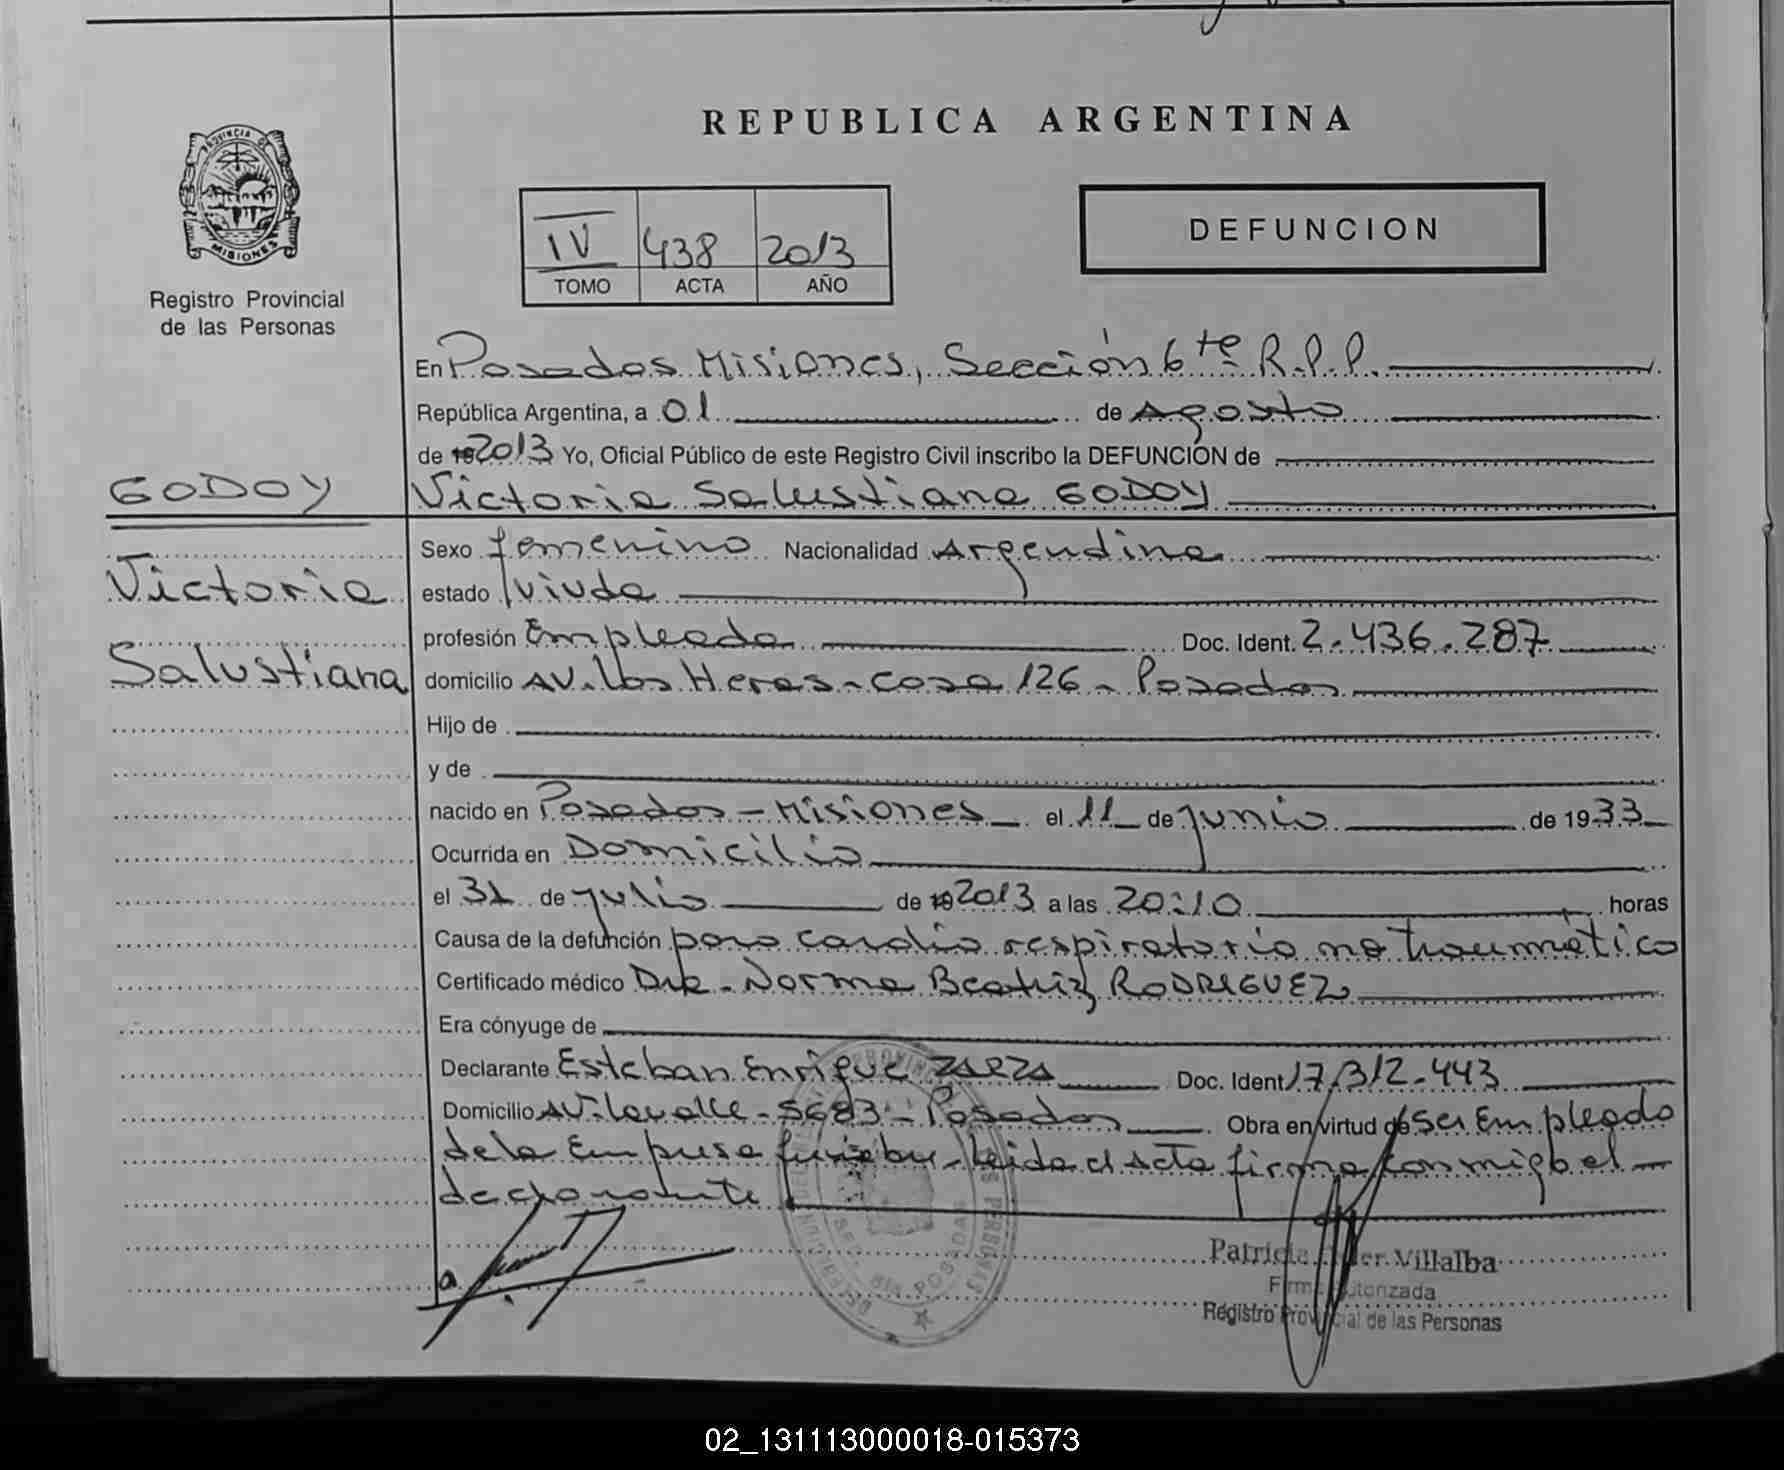 REPUBLICA ARGENTINA
PROVINCIA DE
MISIONES
Registro Provincial
de las Personas
IV 438 2013
TOMO ACTA AÑO
DEFUNCION
En Posadas Misiones, Sección 6te R.P.P.
República Argentina, a 01 de Agosto
de 19 2013 Yo, Oficial Público de este Registro Civil inscribo la DEFUNCIÓN de
GODOY
Victoria Salustiana GODOY
Sexo femenino Nacionalidad Argentina
Victoria
estado viuda
profesión Empleada Doc. Ident. 2.436.287
Salustiana
domicilio AV. Las Heras - casa 126 - Posadas
Hijo de
y de
nacido en Posadas - Misiones el 11 de junio de 1933
Ocurrida en Domicilio
el 31 de julio de 19 2013 a las 20:10 horas
Causa de la defunción paro cardio respiratorio no traumático
Certificado médico Dra. Norma Beatriz RODRIGUEZ
Era cónyuge de
Declarante Esteban Enrique ZARZA Doc. Ident 17.312.443
Domicilio AV. Lavalle - 5683 - Posadas Obra en virtud de ser Empleado
de la Empresa fúnebre - Leida el Acta firma conmigo el
declarante
Patricia Villalba
Firma Autorizada
Registro Provincial de las Personas
02_131113000018-015373